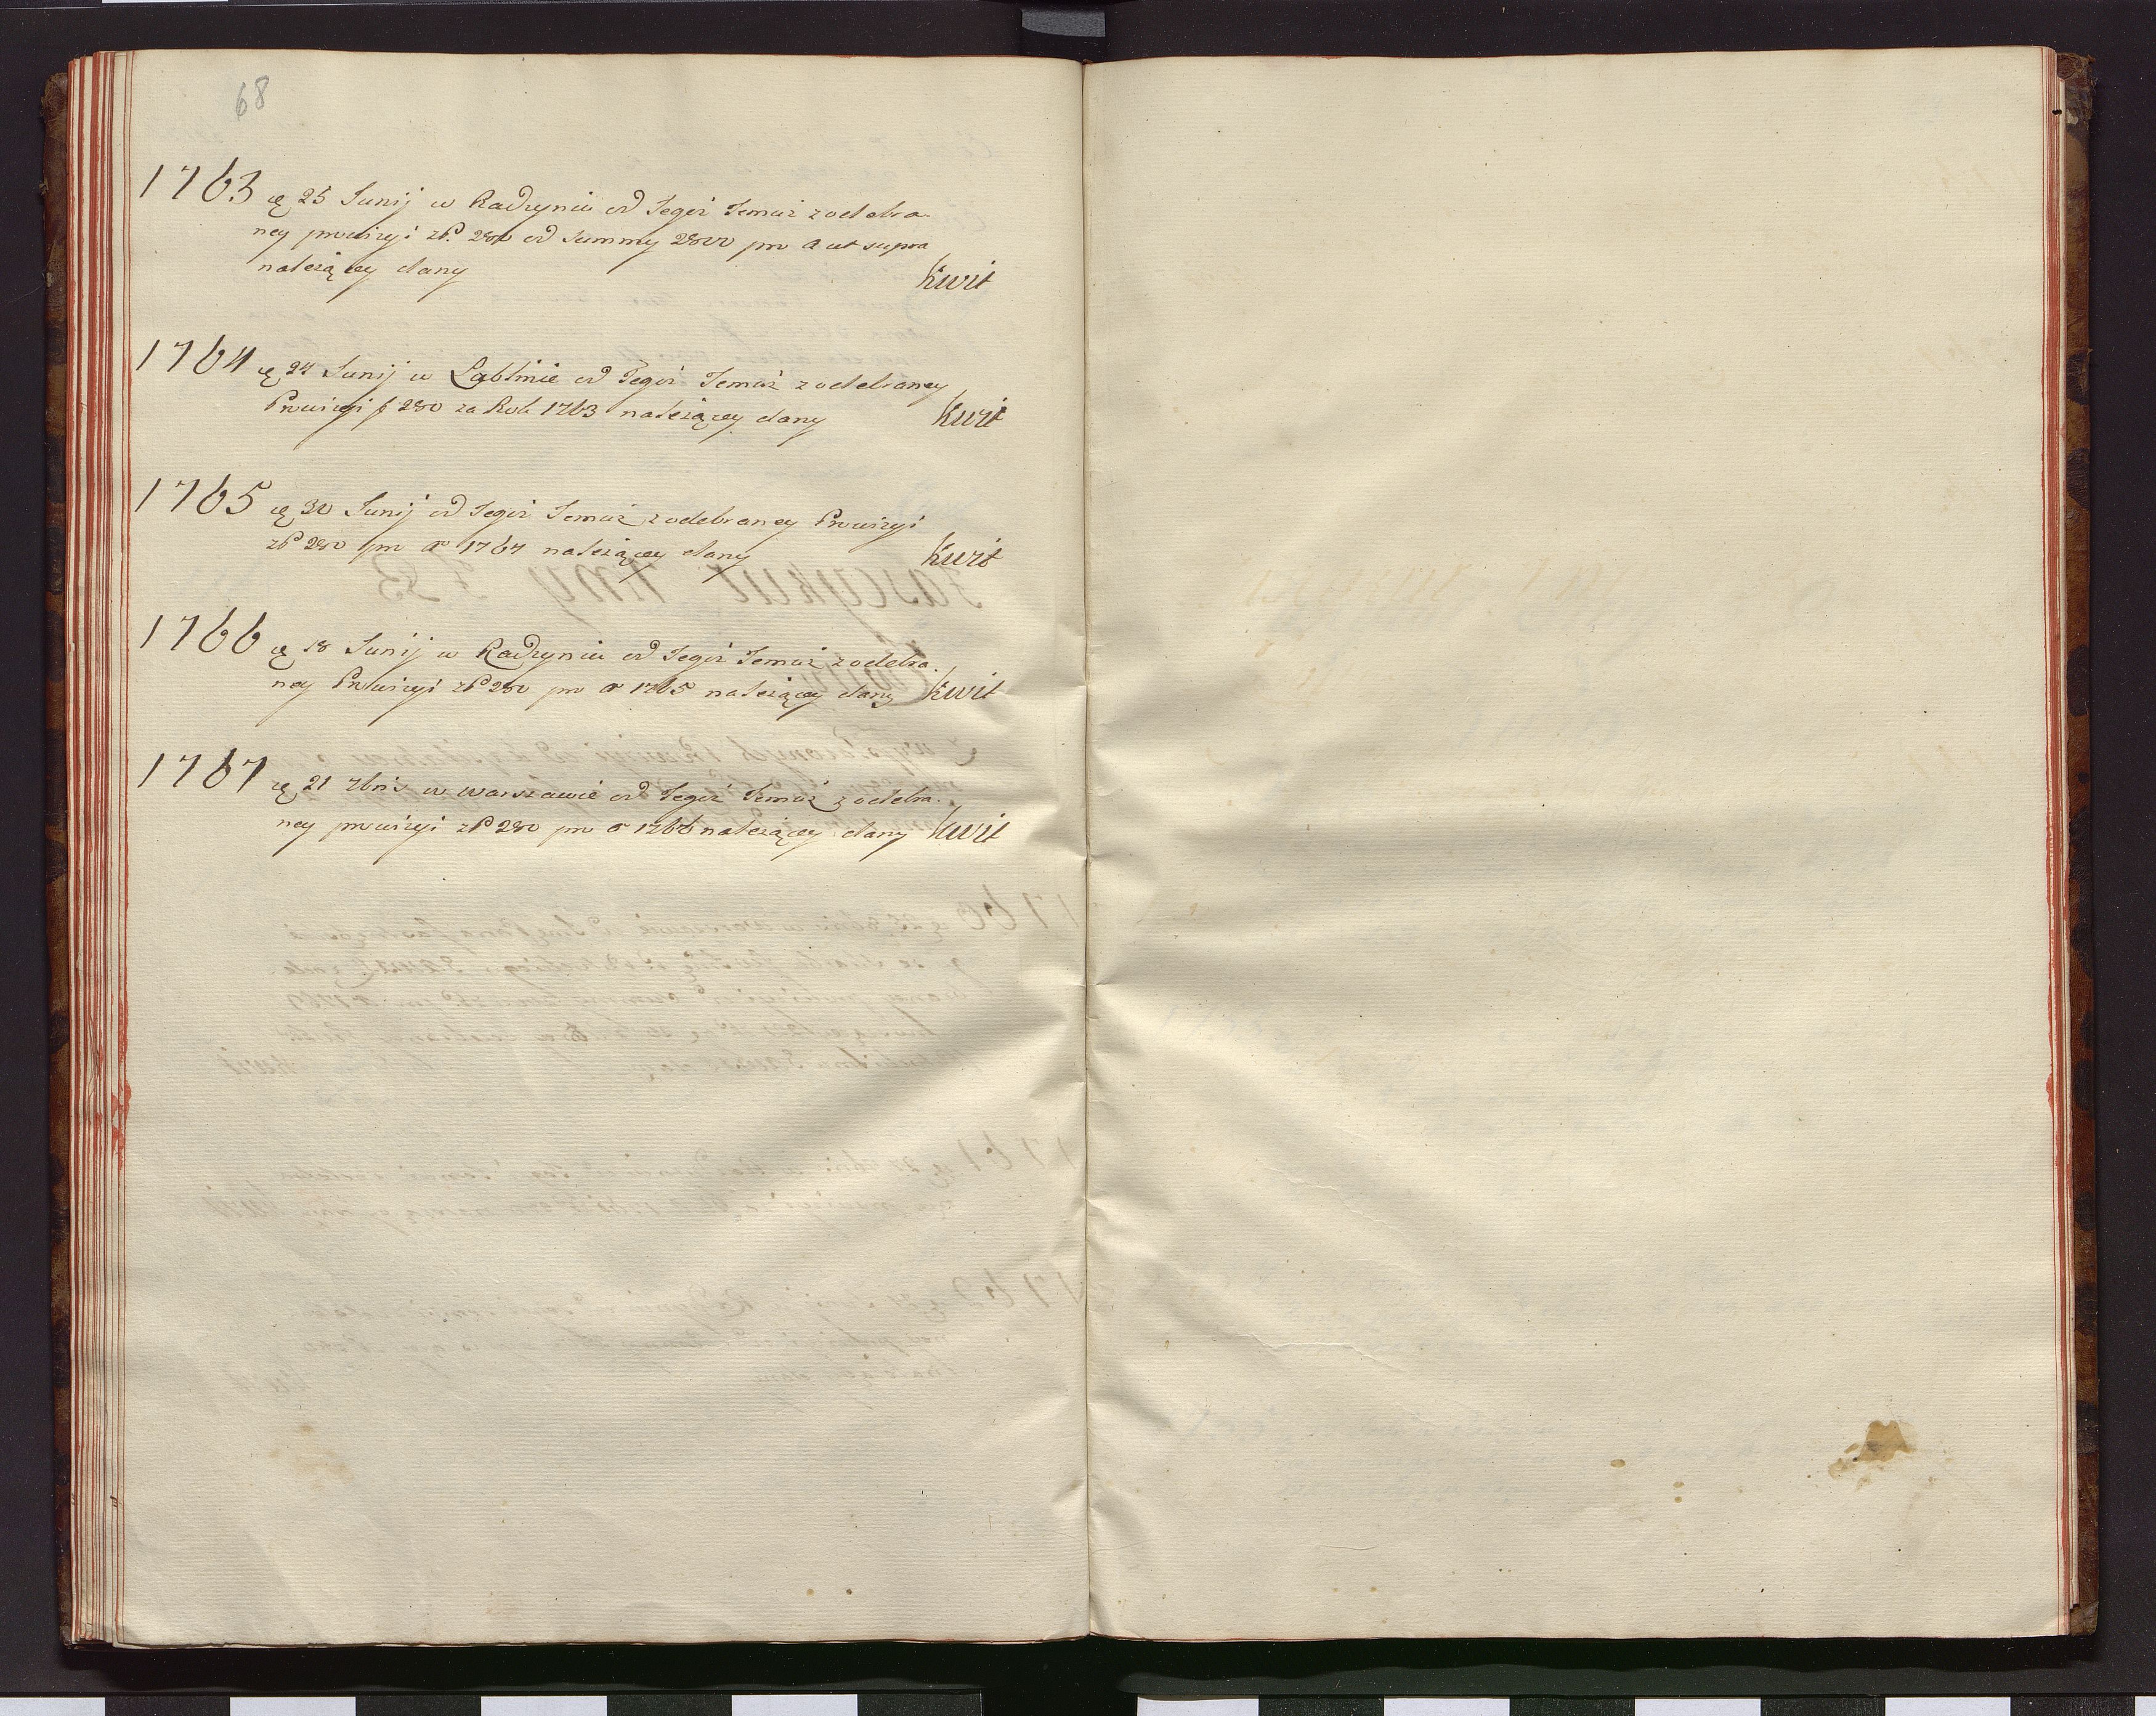 68
1763 ię 25 Junij w Radzyniu od Tegoż Temuż z odebra-
ney prowizyi zł. 280 od summy 2800 pro A ut supra
należącey dany Kwit
1764 ię 24 Junij w Lublinie od Tegoż Temuż z odebraney
Prowizyi f 280 za Rok 1763 należącey dany Kwit
1765 ię 30 Junij od Tegoż Temuż z odebraney Prowizyi
zł 280 pro A 1764 należącey dany Kwit
1766 ię 18 Junij w Radzyniu od Tegoż Temuż z odebra-
ney Prowizyi zł 280 pro A 1765 należącey dany Kwit
1767 ię 21 7bris w warszawie od Tegoż Temuż z odebra-
ney prowizyi zł 280 pro A 1766 należącey dany Kwit